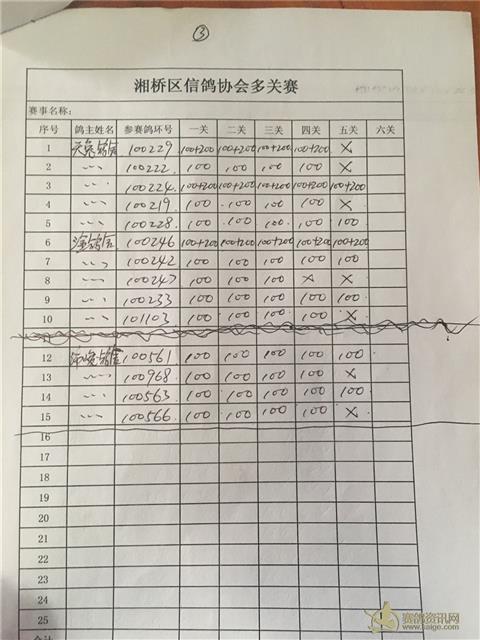 ③
湘桥区信鸽协会多关赛
赛事名称:
序号 鸽主姓名 参赛鸽环号 一关 二关 三关 四关 五关 六关
1 100229 100+200 100+200 100+200 100+200 ×
2 〃 100222 100 100 100 100 ×
3 〃 100224 100+200 100+200 100+200 100+200 100+200
4 〃 100219 100 100 100 100 ×
5 〃 100228 100 100 100 100 100
6 100246 100+200 100+200 100+200 100+200 100+200
7 〃 100242 100 100 100 100 100
8 〃 100247 100 100 100 × ×
9 〃 100233 100 100 100 100 100
10 〃 101103 100 100 100 100 ×
12 100561 100 100 100 100 100
13 〃 100968 100 100 100 100 ×
14 〃 100563 100 100 100 100 100
15 〃 100566 100 100 100 100 ×
16
17
18
19
20
21
22
23
24
25
赛鸽资讯网
www.saige.com